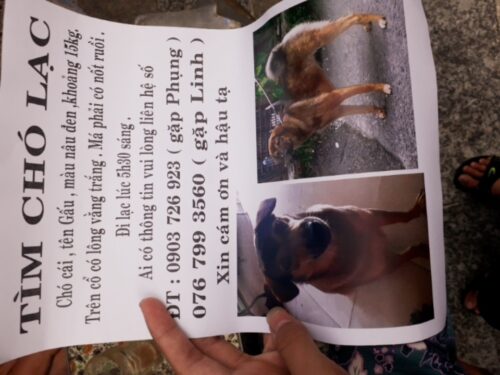 TÌM CHÓ LẠC
Chó cái , tên Gấu , màu nâu đen ,khoảng 15kg.
Trên cổ có lông vàng trắng . Má phải có nốt ruồi .
Đi lạc lúc 5h30 sáng .
Ai có thông tin vui lòng liên hệ số
ĐT : 0903 726 923 ( gặp Phụng )
076 799 3560 ( gặp Linh )
Xin cám ơn và hậu tạ